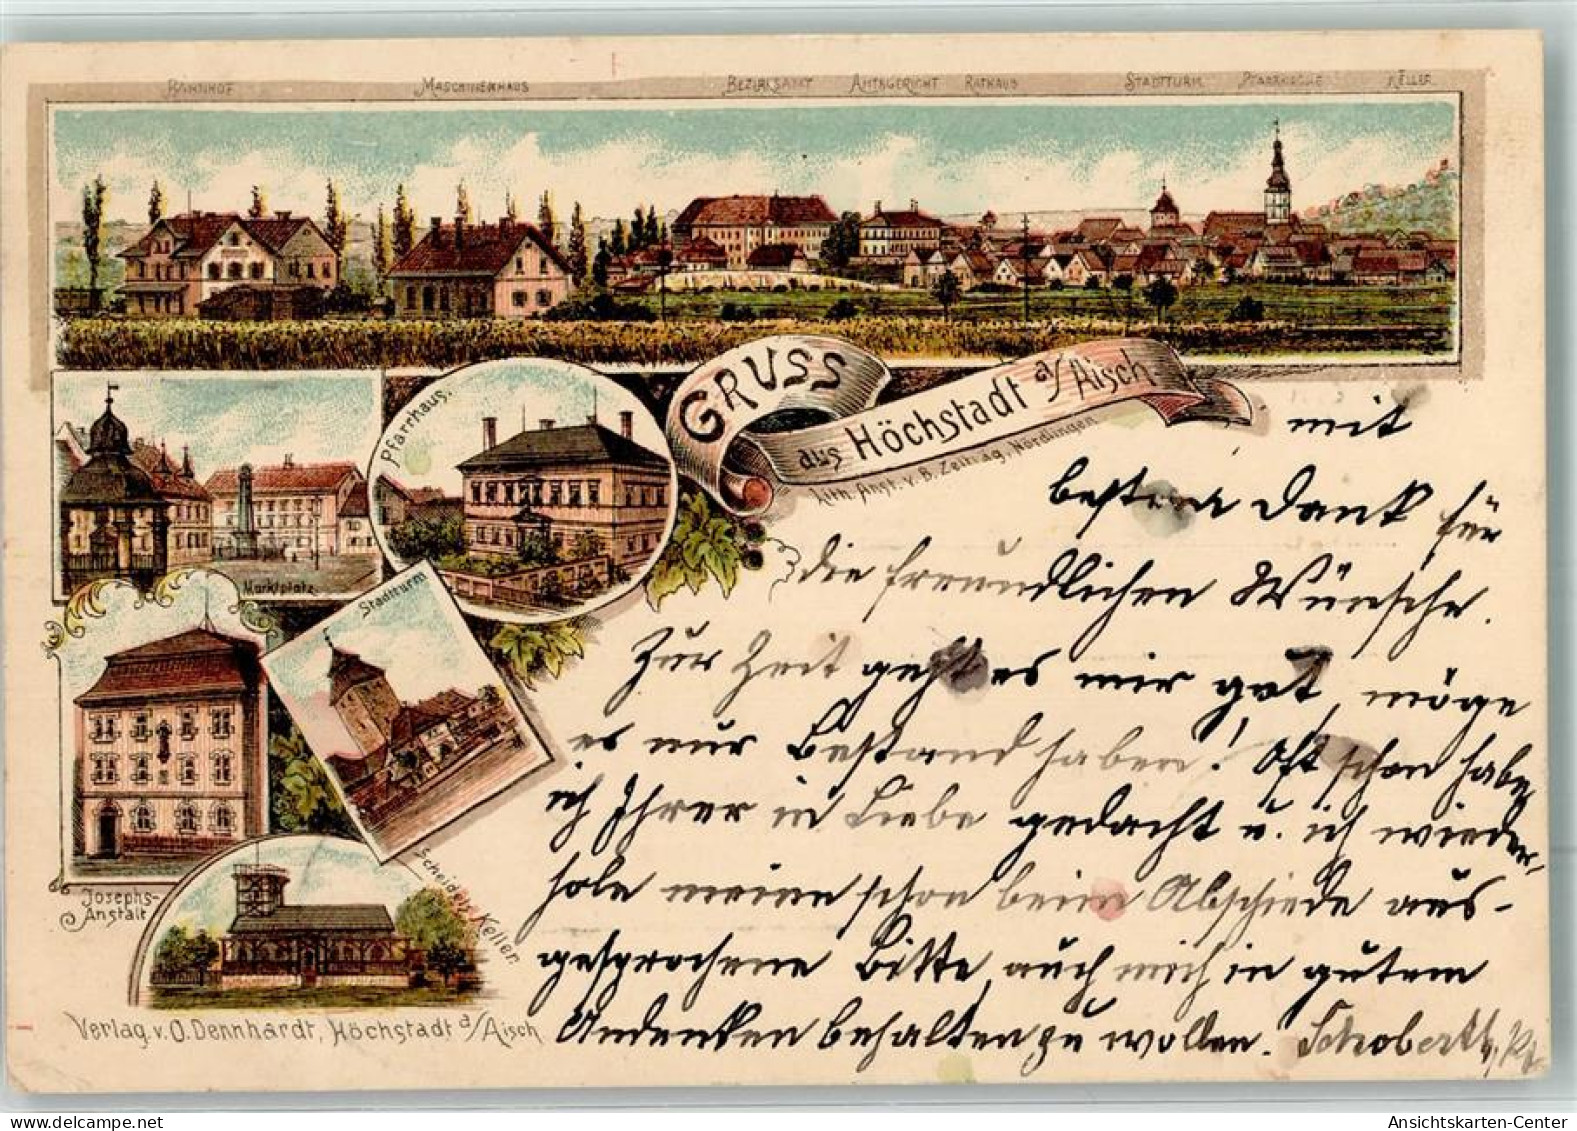 BAHNHOF MASCHINENHAUS BEZIRKSAMT AMTSGERICHT RATHAUS STADTTURM PFARRKIRCHE KELLER
GRUSS
aus Höchstadt a/Aisch
Lith. Anst. v. B. Zeitrag, Nördlingen
Marktplatz
Pfarrhaus.
Stadtturm
Josephs-
Anstalt
Scheidel, Keller.
Verlag v. O. Dennhardt, Höchstadt a/Aisch
mit
bestem Dank für
die freundlichen Wünsche.
Zur Zeit geht es mir gut, möge
es nur Bestand haben! Oft schon habe
ich Ihrer in Liebe gedacht u. ich wieder-
hole meine schon beim Abschiede aus-
gesprochene Bitte, auch mich in gutem
Andenken behalten zu wollen. Schoberth
Ansichtskarten-Center